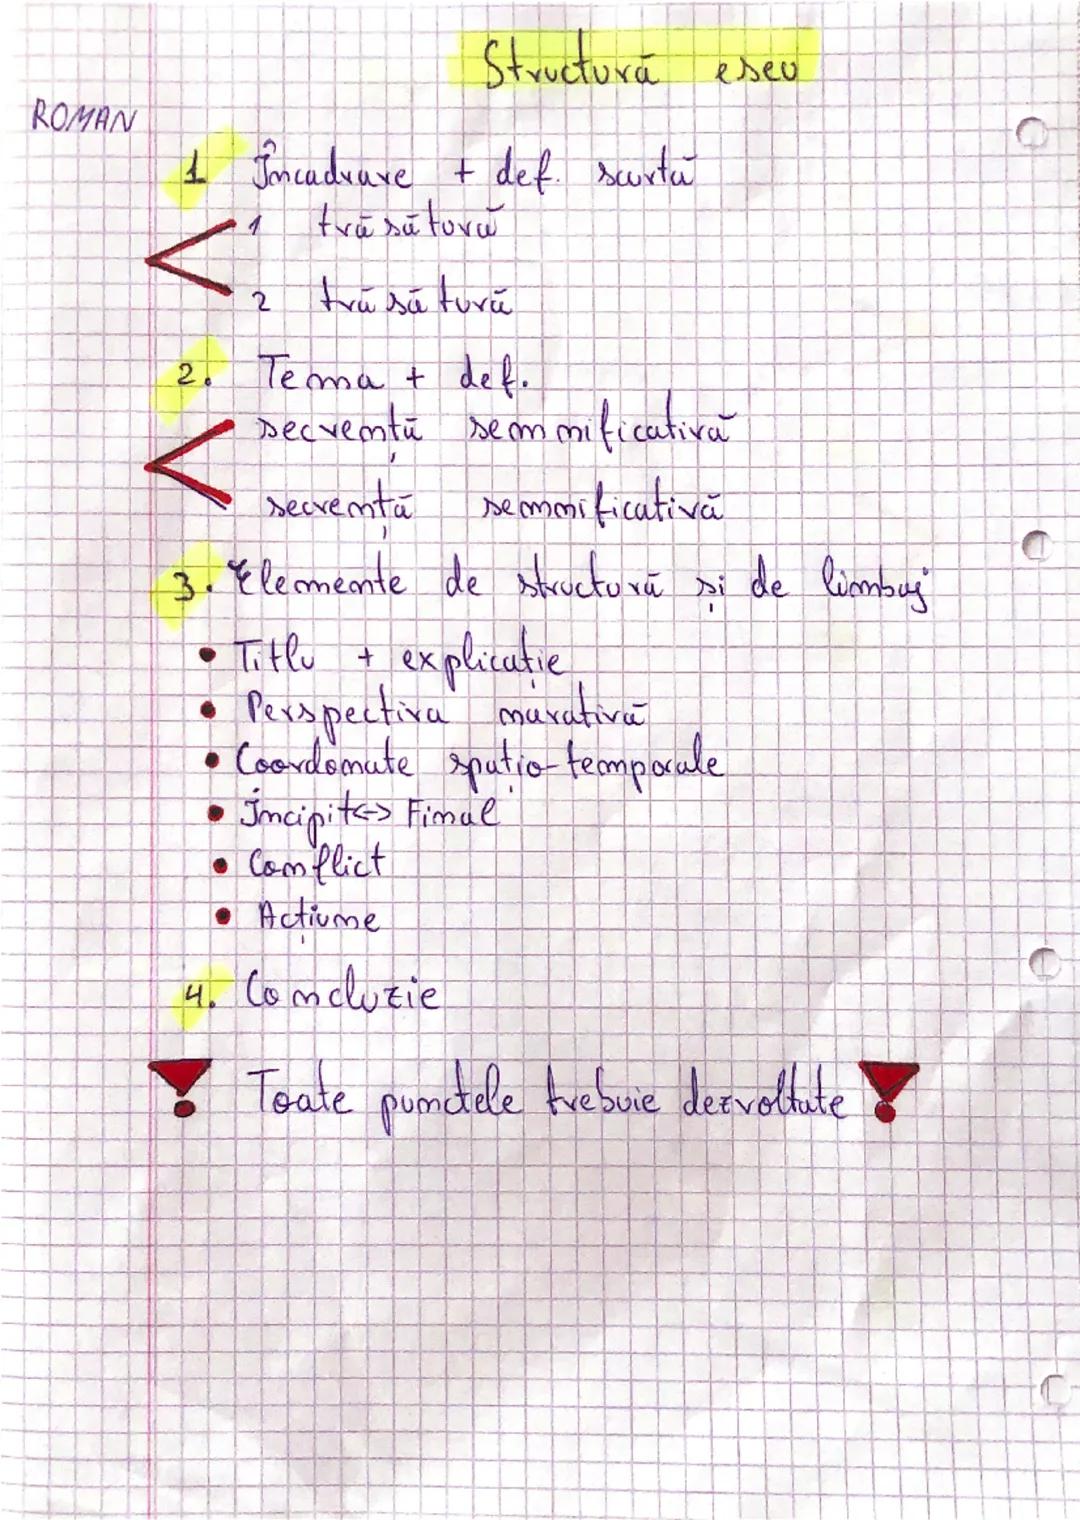 Structură eseu
ROMAN
1 Încadrare + def. scurtă
1 trăsătură
2 trăsătură
2. Tema + def.
secvență semnificativă
secvență semnificativă
3. Elemente de structură și de limbaj
• Titlu + explicație
• Perspectiva narativă
• Coordonate spațio-temporale
• Incipit <-> Final
• Conflict
• Acțiune
4. Concluzie
! Toate punctele trebuie dezvoltate !